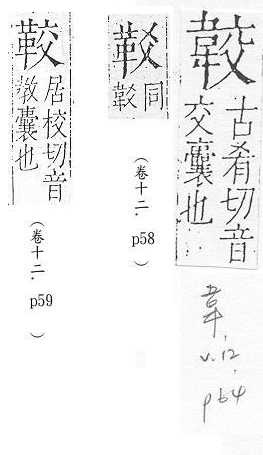 古肴切音
交囊也
韋,
v.12,
p64
同
（卷十二．
p58
）
居校切音
教囊也
（卷十二．
p59
）